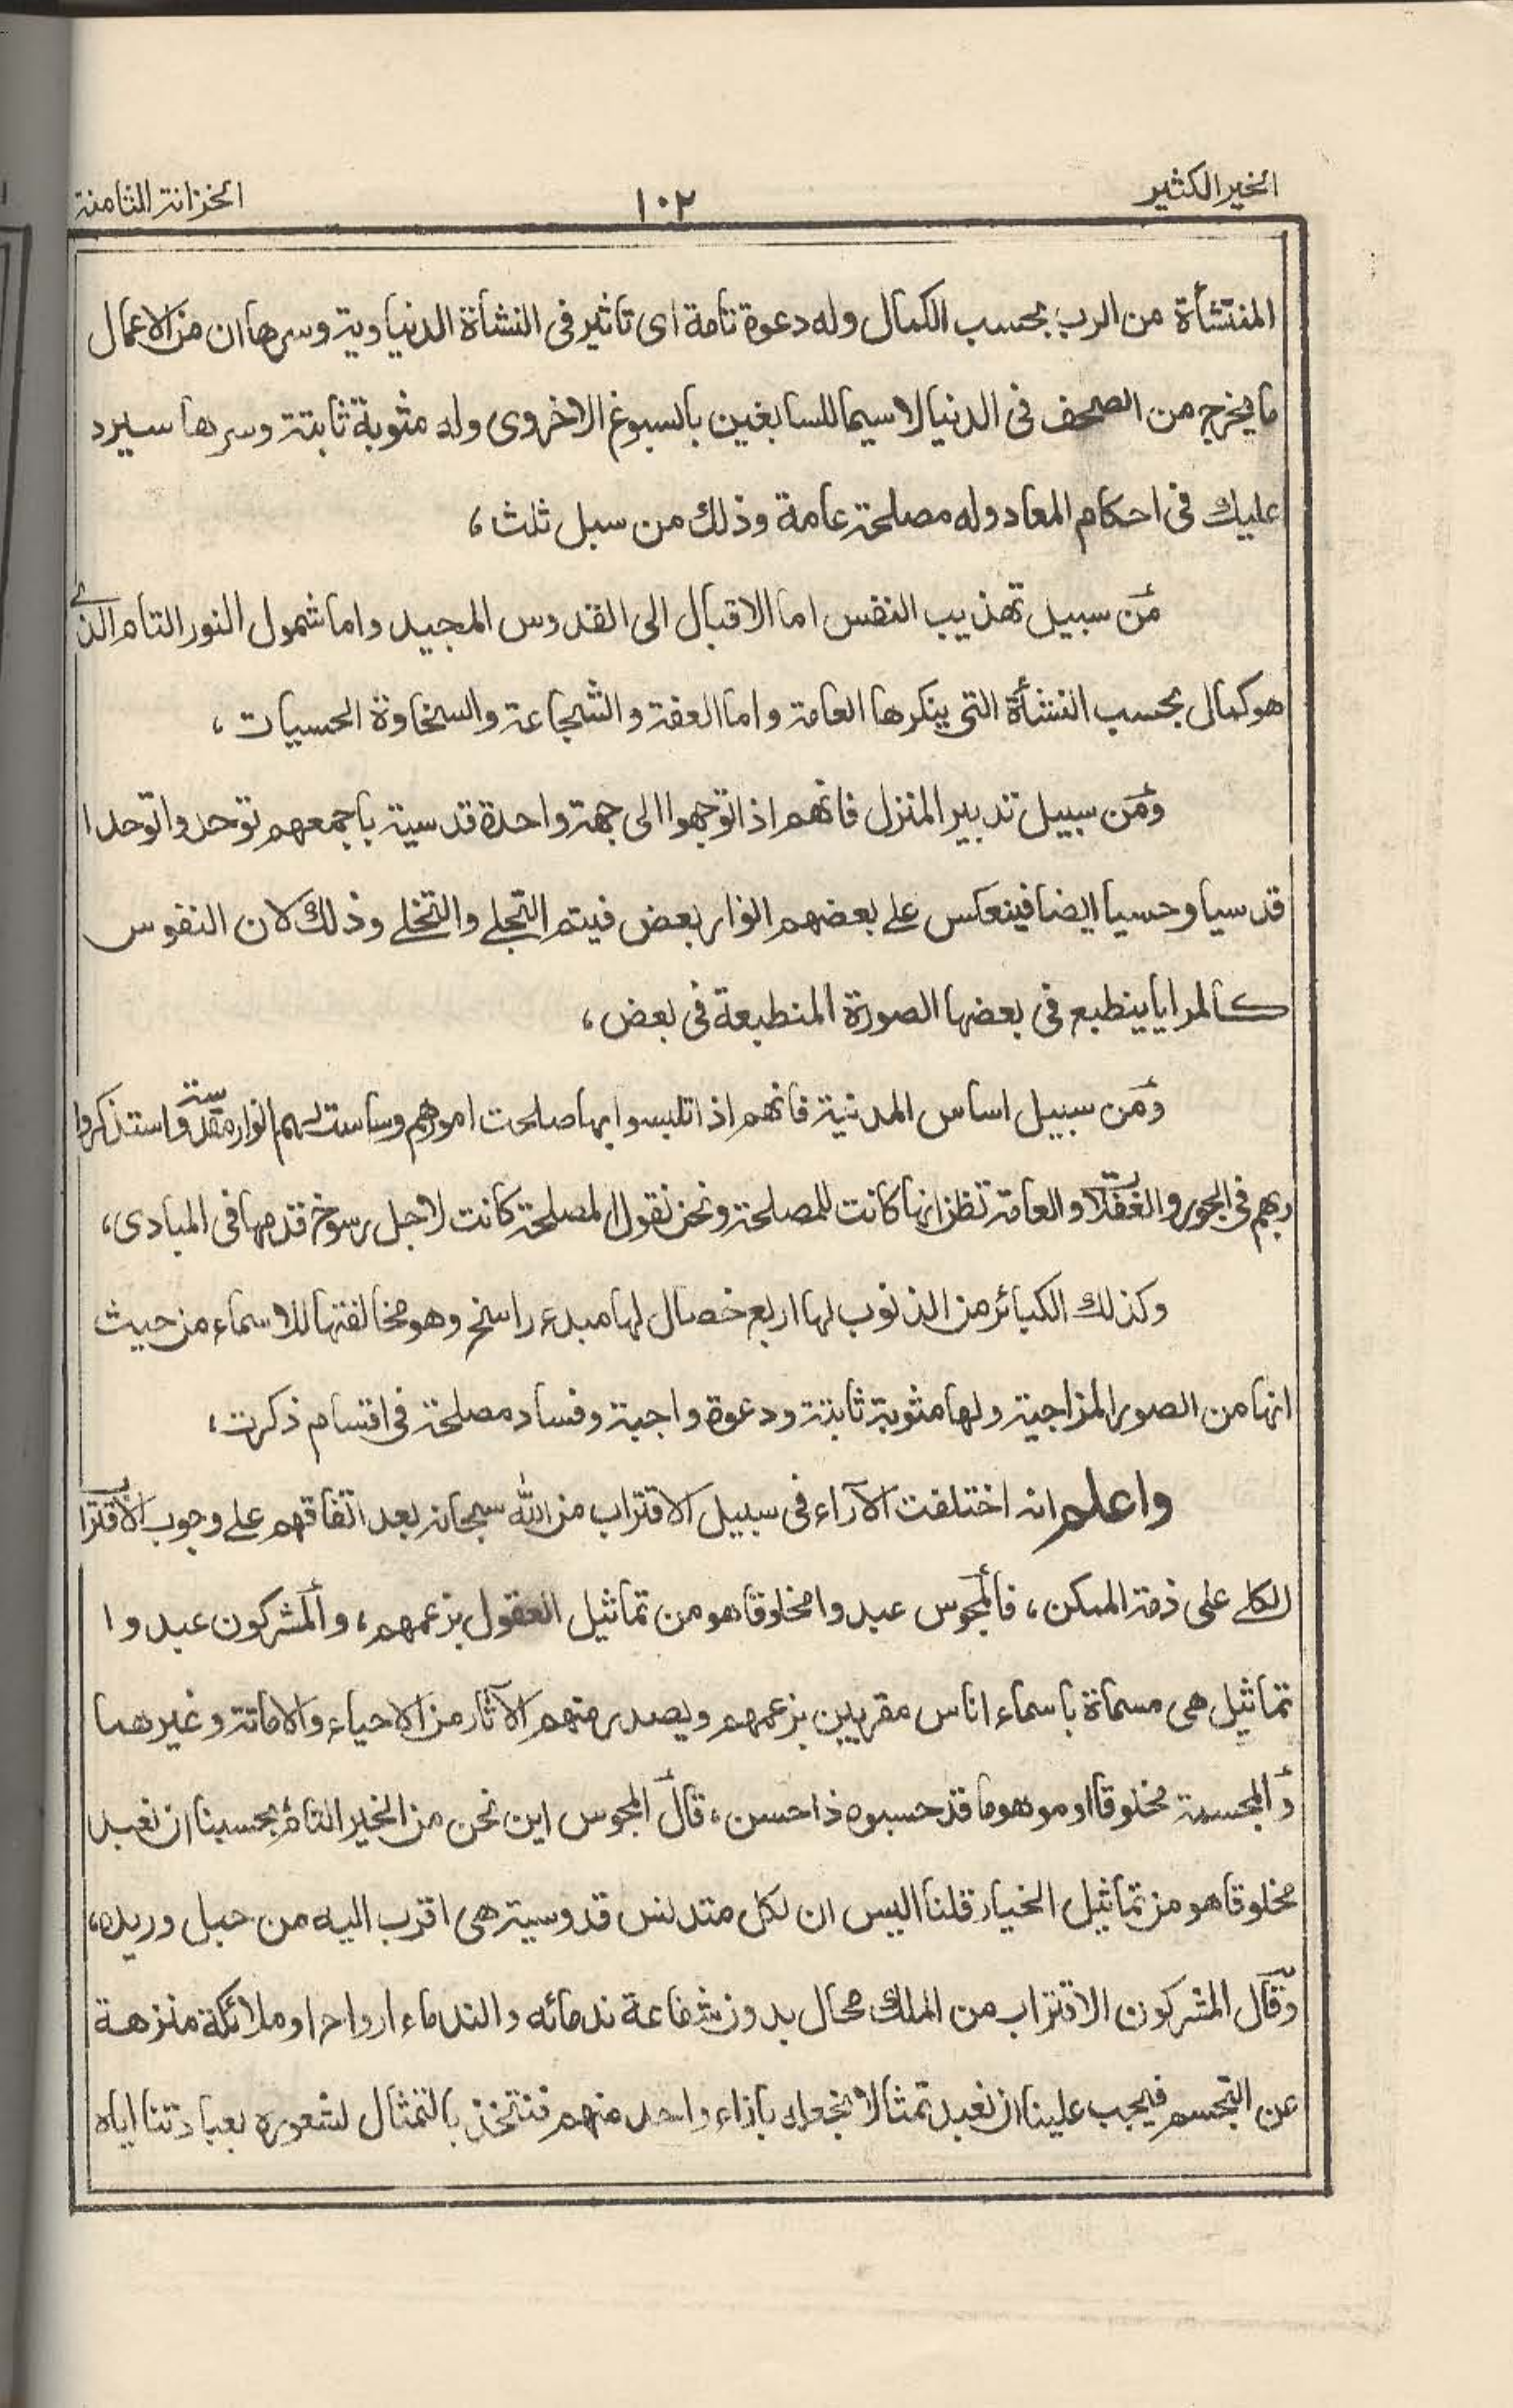 الخير الكثير
١٠٢
الخزانة الثامنة
المنتشأة من الرب بحسب الكمال وله دعوة تامة اى تاثير فى النشاة الدنياوية وسرها ان من الاعمال
ما يخرج من الصحف فى الدنيا لاسيما للسابغين بالسبوغ الاخروى وله مثوبة ثابتة وسرها سيرد
عليك فى احكام المعاد وله مصلحة عامة وذلك من سبل ثلث،
من سبيل تهذيب النفس اما الاقبال الى القدوس المجيد واما شمول النور التام الذے
هو كمال بحسب النشأة التى ينكرها العامة واما العفة والشجاعة والسخاوة الحسيات،
ومن سبيل تدبير المنزل فانهم اذا توجهوا الى جهة واحدة قدسية باجمعهم توحدوا توحدا
قدسيا وحسيا ايضا فينعكس علے بعضهم انوار بعض فيتم التجلے والتخلے وذلك لان النفوس
كالمرايا ينطبع فى بعضها الصورة المنطبعة فى بعض،
ومن سبيل اساس المدنية فانهم اذا تلبسوا بها صلحت امورهم وساست لهم انوار مقدسة واستذكروا
ربهم فى الجور والغفلات والعامة تظن انها كانت للمصلحة ونحن نقول المصلحة كانت لاجل رسوخ قدمها فى المبادى،
وكذلك الكبائر من الذنوب لها اربع خصال لها مبدء راسخ وهو مخالفتها للاسماء من حيث
انها من الصور المزاجية ولها مثوبة ثابتة ودعوة واجبة وفساد مصلحة فى اقسام ذكرت،
واعلم انه اختلفت الآراء فى سبيل الاقتراب من الله سبحانه بعد اتفاقهم علے وجوب الاقتراب
الكلے على ذمة الممكن، فالمجوس عبدوا مخلوقا هو من تماثيل العقول بزعمهم، والمشركون عبدوا
تماثيل هى مسماة باسماء اناس مقربين بزعمهم ويصدر منهم الآثار من الاحياء والاماتة وغيرهما
والمجسمة مخلوقا او موهوما قد حسبوه ذا حسن، قال المجوس اين نحن من الخير التام بحسبنا ان نعبد
مخلوقا هو من تماثيل الخيار قلنا اليس ان لكل متدنس قدوسية هى اقرب اليه من حبل وريده،
وقال المشركون الاقتراب من الملك محال بدون شفاعة ندمائه والندماء ارواح او ملائكة منزهة
عن التجسم فيجب علينا ان نعبد تمثالا نجعله بازاء واحد منهم فنتخذ بالتمثال لشعوره بعبادتنا اياه